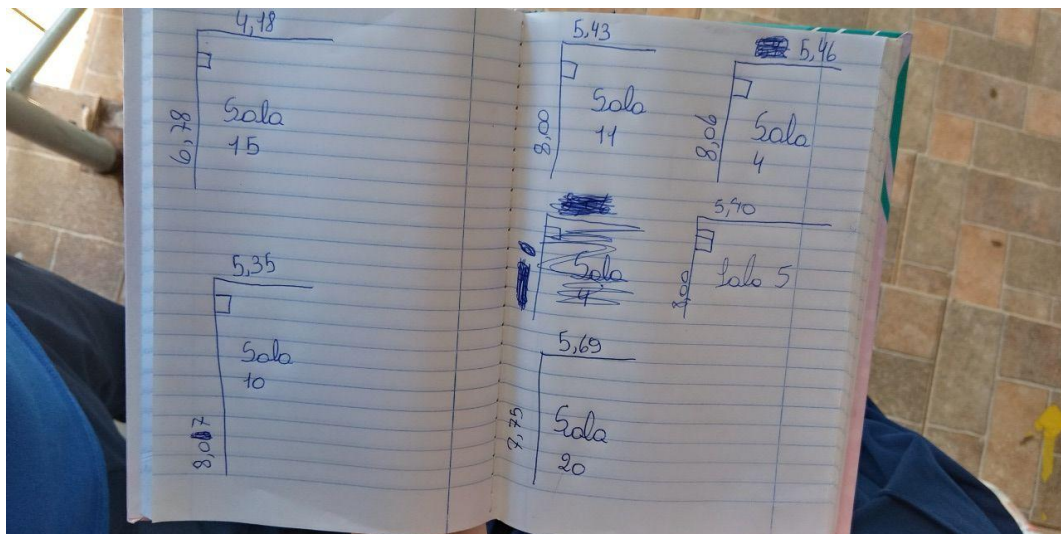 4,18
6,78
Sala
15
5,35
8,07
Sala
10
5,43
8,00
Sala
11
5,46
8,06
Sala
4
8
Sala
4
5,40
8,00
Sala 5
5,69
7,75
Sala
20